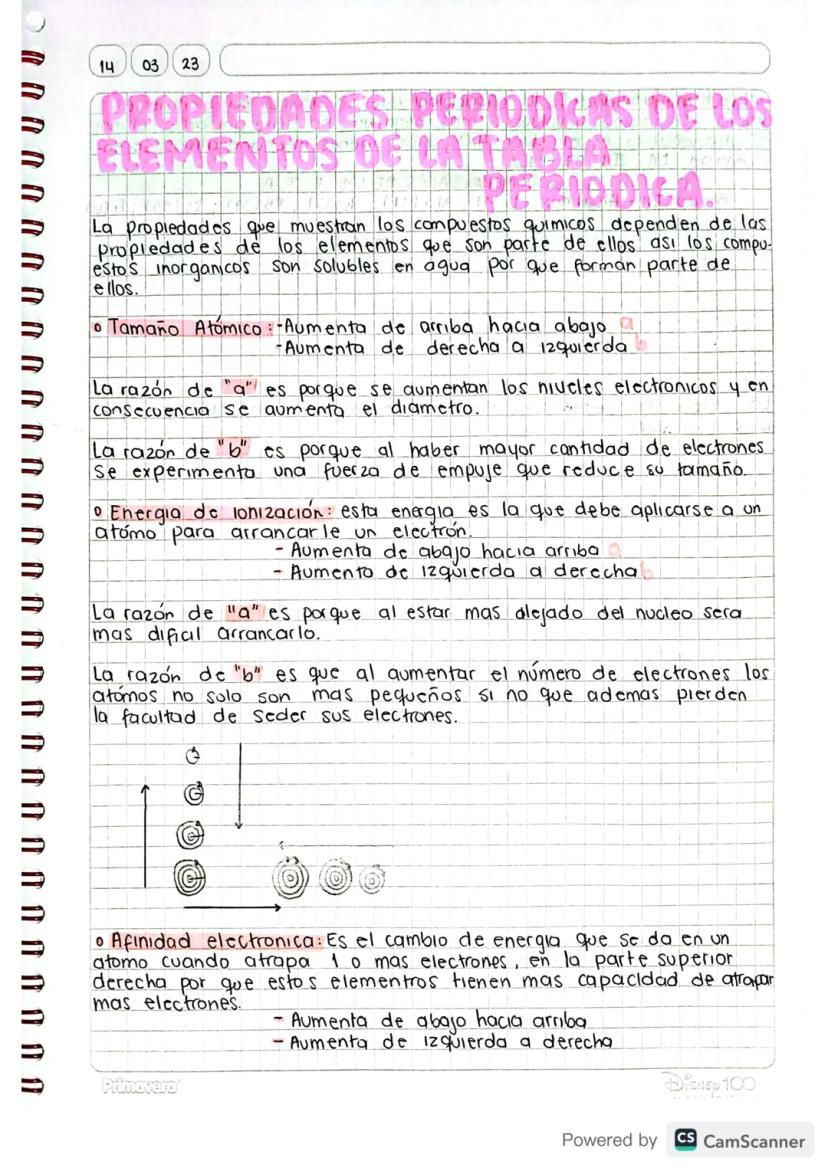 14 03 23
PROPIEDADES PERIODICAS DE LOS
ELEMENTOS DE LA TABLA
PERIODICA.
La propiedades que muestran los compuestos quimicos dependen de las
propiedades de los elementos que son parte de ellos asi los compu-
estos inorganicos son solubles en agua por que forman parte de
ellos.
o Tamaño Atómico: -Aumenta de arriba hacia abajo a
-Aumenta de derecha a izquierda b
La razón de "a" es porque se aumentan los niveles electronicos y en
consecuencia se aumenta el diametro.
La razón de "b" es porque al haber mayor cantidad de electrones
se experimenta una fuerza de empuje que reduce su tamaño.
o Energia de ionización: esta energia es la que debe aplicarse a un
atómo para arrancarle un electrón.
- Aumenta de abajo hacia arriba a
- Aumento de izquierda a derecha b
La razón de "a" es porque al estar mas alejado del nucleo sera
mas dificil arrancarlo.
La razón de "b" es que al aumentar el número de electrones los
atómos no solo son mas pequeños si no que ademas pierden
la facultad de seder sus electrones.
o Afinidad electronica: Es el cambio de energia que se da en un
atomo cuando atrapa 1 o mas electrones, en la parte superior
derecha por que estos elementos tienen mas capacidad de atrapar
mas electrones.
- Aumenta de abajo hacia arriba
- Aumenta de izquierda a derecha
Primavera
Disney 100
Powered by CS CamScanner